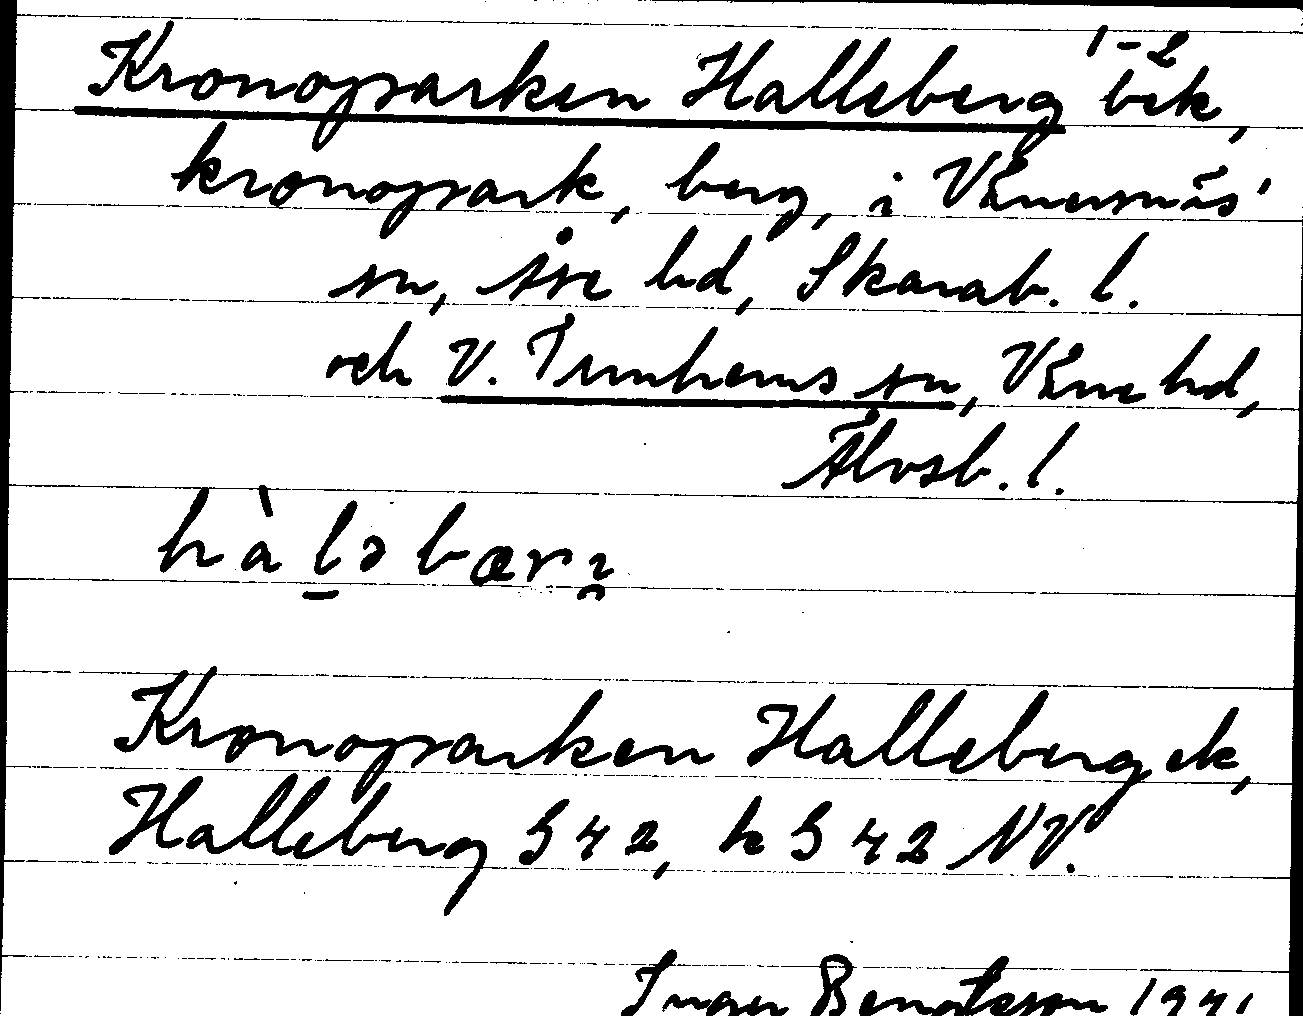 Kronoparken Halleberg 1-2 bek,
kronopark, berg, i Vänersnäs'
sn, Åse hd, Skarab. l.
och V. Tunhems sn, Väne hd,
Älvsb. l.
hàl̠əbærɂ̯
Kronoparken Halleberg ek,
Halleberg G 42, k G 42 NV.
Inger Bengtsson 1941